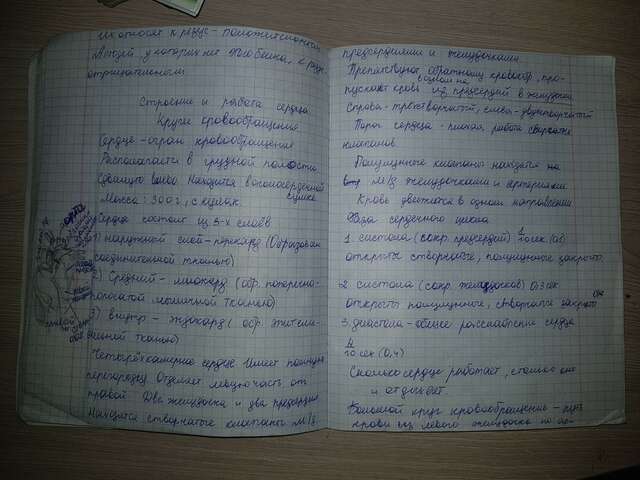 их относят к резус-положительным
Людей у которых нет этого белка, к резус
отрицательным.
Строение и работа сердца
Круги кровообращения
Сердце - орган кровообращения
Располагается в грудной полости,
сдвинуто влево. Находится в околосердечной
сумке
Масса: 300г, с кулак.
Сердце состоит из 3-х слоёв
1) наружный слой - перикард (Образован
соединительной тканью)
2) Средний - миокард (обр. поперечно-
полосатой мышечной тканью)
3) внутр - эндокард (обр. эпители-
альной тканью)
Четырёхкамерное сердце имеет полную
перегородку. Отделяет левую часть от
правой. Два желудочка и два предсердия
Находятся створчатые клапаны м/д
аорта
предсердиями и желудочками.
Препятствуют обратному кровотоку, про-
пускают кровь из предсердий в желудочки
Справа - трёхстворчатый, слева - двухстворчатый
Порог сердца - плохая работа створчатых
клапанов.
Полулунные клапаны находятся на
м/д желудочками и артериями.
Кровь движется в одном направлении
Фазы сердечного цикла
1. систола (сокр. предсердий) 1/10 сек (0,1)
открыты створчатые, полулунные закрыты.
2 систола (сокр желудочков) 0,3 сек
открыты полулунные, створчатые закрыты
3. диастола - общее расслабление сердца
4/10 сек (0,4)
Сколько сердце работает, столько оно
и отдыхает.
Большой круг кровообращения - путь
крови из левого желудочка по